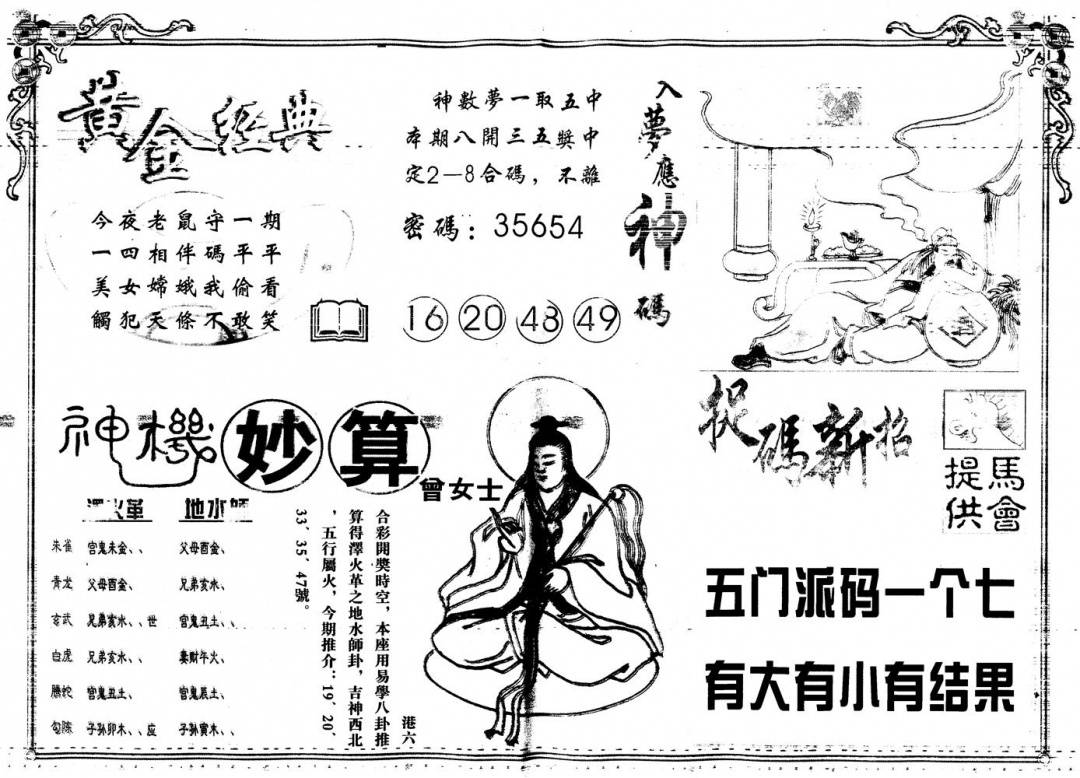 黃金經典
今夜老鼠守一期
一四相伴碼平平
美女嫦娥我偷看
觸犯天條不敢笑
神數夢一取五中
本期八開三五獎中
定2—8合碼，不離
密碼：35654
16 20 48 49
入夢應神碼
神機妙算
曾女士
澤火革 地水師
朱雀 官鬼未金、、 父母酉金、
青龙 父母酉金、 兄弟亥水、、
玄武 兄弟亥水、、世 官鬼丑土、、
白虎 兄弟亥水、、 妻财午火、
螣蛇 官鬼丑土、 官鬼辰土、
勾陈 子孙卯木、、应 子孙寅木、、
港六
合彩開獎時空，本座用易學八卦推
算得澤火革之地水師卦，吉神西北
，五行屬火，今期推介：19、20、
33、35、47號。
捉碼新招
馬會
提供
五门派码一个七
有大有小有结果